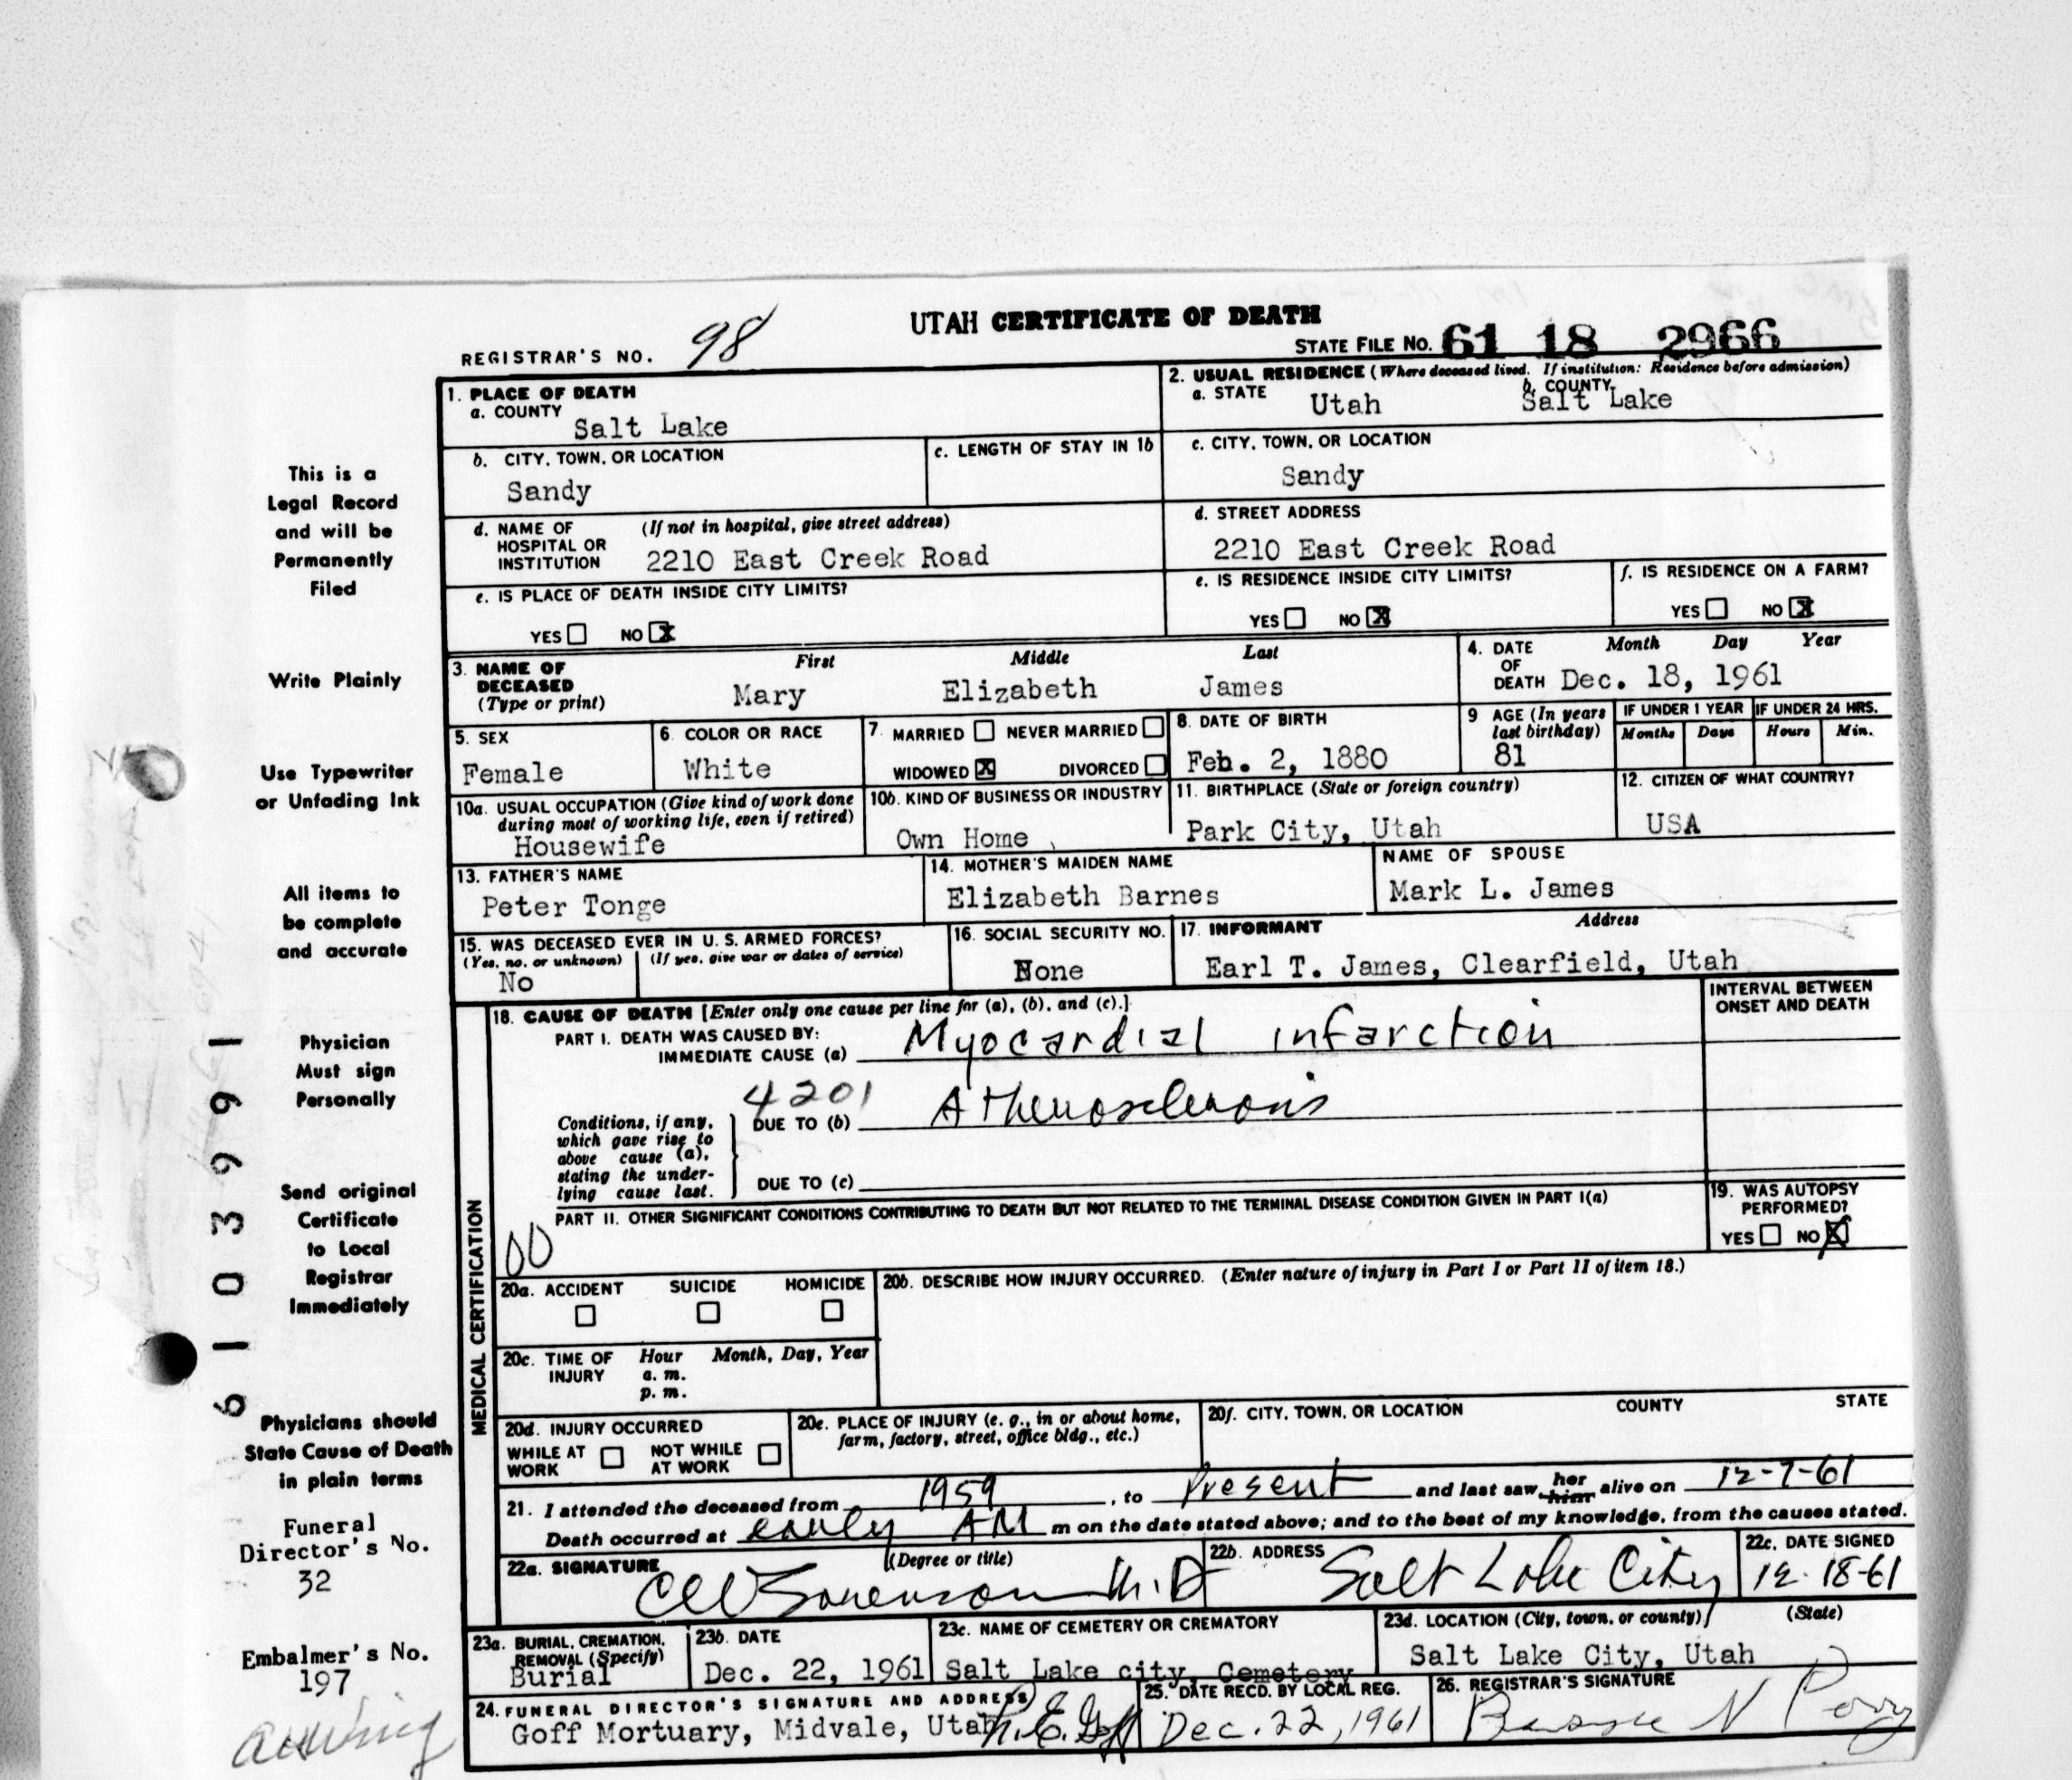 UTAH CERTIFICATE OF DEATH
REGISTRAR'S NO. 98
STATE FILE NO. 61 18 2966
1. PLACE OF DEATH
a. COUNTY
Salt Lake
2. USUAL RESIDENCE (Where deceased lived. If institution: Residence before admission)
a. STATE Utah b. COUNTY Salt Lake
b. CITY, TOWN, OR LOCATION
Sandy
c. LENGTH OF STAY IN 1b
c. CITY, TOWN, OR LOCATION
Sandy
d. NAME OF HOSPITAL OR INSTITUTION (If not in hospital, give street address)
2210 East Creek Road
d. STREET ADDRESS
2210 East Creek Road
e. IS PLACE OF DEATH INSIDE CITY LIMITS?
YES NO X
e. IS RESIDENCE INSIDE CITY LIMITS?
YES NO X
f. IS RESIDENCE ON A FARM?
YES NO X
3. NAME OF DECEASED (Type or print)
First Middle Last
Mary Elizabeth James
4. DATE OF DEATH Month Day Year
Dec. 18, 1961
5. SEX
Female
6. COLOR OR RACE
White
7. MARRIED NEVER MARRIED
WIDOWED X DIVORCED
8. DATE OF BIRTH
Feb. 2, 1880
9 AGE (In years last birthday)
81
IF UNDER 1 YEAR
Months Days
IF UNDER 24 HRS.
Hours Min.
10a. USUAL OCCUPATION (Give kind of work done during most of working life, even if retired)
Housewife
10b. KIND OF BUSINESS OR INDUSTRY
Own Home
11. BIRTHPLACE (State or foreign country)
Park City, Utah
12. CITIZEN OF WHAT COUNTRY?
USA
13. FATHER'S NAME
Peter Tonge
14. MOTHER'S MAIDEN NAME
Elizabeth Barnes
NAME OF SPOUSE
Mark L. James
15. WAS DECEASED EVER IN U. S. ARMED FORCES?
(Yes, no, or unknown) (If yes, give war or dates of service)
No
16. SOCIAL SECURITY NO.
None
17. INFORMANT Address
Earl T. James, Clearfield, Utah
MEDICAL CERTIFICATION
18. CAUSE OF DEATH [Enter only one cause per line for (a), (b), and (c).]
INTERVAL BETWEEN ONSET AND DEATH
PART I. DEATH WAS CAUSED BY:
IMMEDIATE CAUSE (a) Myocardial infarction
4201
Conditions, if any, which gave rise to above cause (a), stating the underlying cause last.
DUE TO (b) Atherosclerosis
DUE TO (c)
PART II. OTHER SIGNIFICANT CONDITIONS CONTRIBUTING TO DEATH BUT NOT RELATED TO THE TERMINAL DISEASE CONDITION GIVEN IN PART I(a)
00
19. WAS AUTOPSY PERFORMED?
YES NO X
20a. ACCIDENT SUICIDE HOMICIDE
20b. DESCRIBE HOW INJURY OCCURRED. (Enter nature of injury in Part I or Part II of item 18.)
20c. TIME OF INJURY Hour Month, Day, Year
a. m.
p. m.
20d. INJURY OCCURRED
WHILE AT WORK NOT WHILE AT WORK
20e. PLACE OF INJURY (e. g., in or about home, farm, factory, street, office bldg., etc.)
20f. CITY, TOWN, OR LOCATION COUNTY STATE
21. I attended the deceased from 1959, to Present and last saw her him alive on 12-7-61
Death occurred at early AM m on the date stated above; and to the best of my knowledge, from the causes stated.
22a. SIGNATURE (Degree or title)
CW Sorenson M.D
22b. ADDRESS
Salt Lake City
22c. DATE SIGNED
12-18-61
23a. BURIAL, CREMATION, REMOVAL (Specify)
Burial
23b. DATE
Dec. 22, 1961
23c. NAME OF CEMETERY OR CREMATORY
Salt Lake city, Cemetery
23d. LOCATION (City, town, or county) (State)
Salt Lake City, Utah
24. FUNERAL DIRECTOR'S SIGNATURE AND ADDRESS
Goff Mortuary, Midvale, Utah R. E. Goff
25. DATE RECD. BY LOCAL REG.
Dec. 22, 1961
26. REGISTRAR'S SIGNATURE
This is a
Legal Record
and will be
Permanently
Filed
Write Plainly
Use Typewriter
or Unfading Ink
All items to
be complete
and accurate
Physician
Must sign
Personally
Send original
Certificate
to Local
Registrar
Immediately
Physicians should
State Cause of Death
in plain terms
Funeral
Director's No.
32
Embalmer's No.
197
61039 91